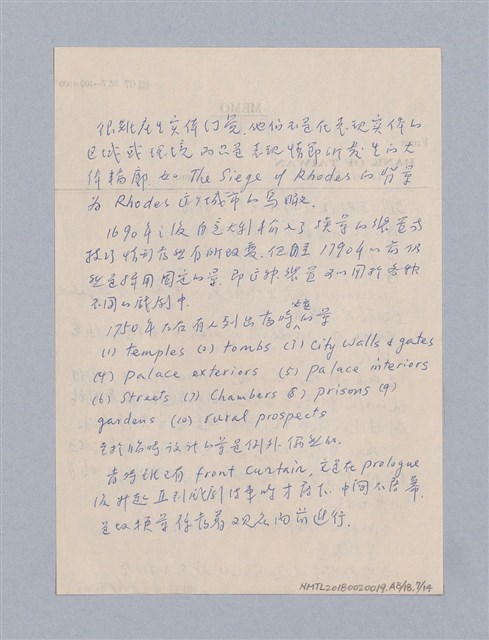 很難產生實体幻覺. 他们不是在表現实体的
区域或環境 而只是表現情節所发生的大
体輪廓 如 The Siege of Rhodes 的背景
為 Rhodes 這個城市的鳥瞰.
1690年之後 自意大利輸入了換景的裝置与
技巧 情形有些有所改变. 但直至 1790年以前仍
是採用固定的景. 即這种裝置可以用於各种
不同的戲劇中.
1750年左右有人列出當時常這的景
(1) temples (2) tombs (3) City walls & gates
(4) palace exteriors (5) palace interiors
(6) Streets (7) Chambers (8) prisons (9)
gardens (10) rural prospects
至於臨時設計的景是例外
當時已有 front curtain, 它是在 prologue
後升起 直到戲劇結束時才落下. 中间不落幕.
是以換景係當着观众面前進行.
NMTL20180020019.A8/18.7/14
MEMO